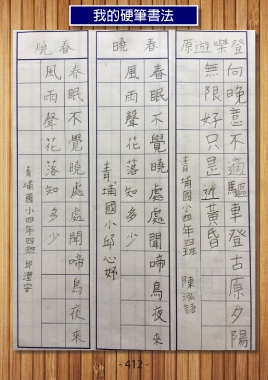 我的硬筆書法
登樂遊原
向晚意不適驅車登古原夕陽
無限好只是近黃昏
青埔國小四年四班 陳泓語
春曉
春眠不覺曉處處聞啼鳥夜來
風雨聲花落知多少
青埔國小邱心妤
春曉
春眠不覺曉處處聞啼鳥夜來
風雨聲花落知多少
青埔國小四年四班
- 412 -